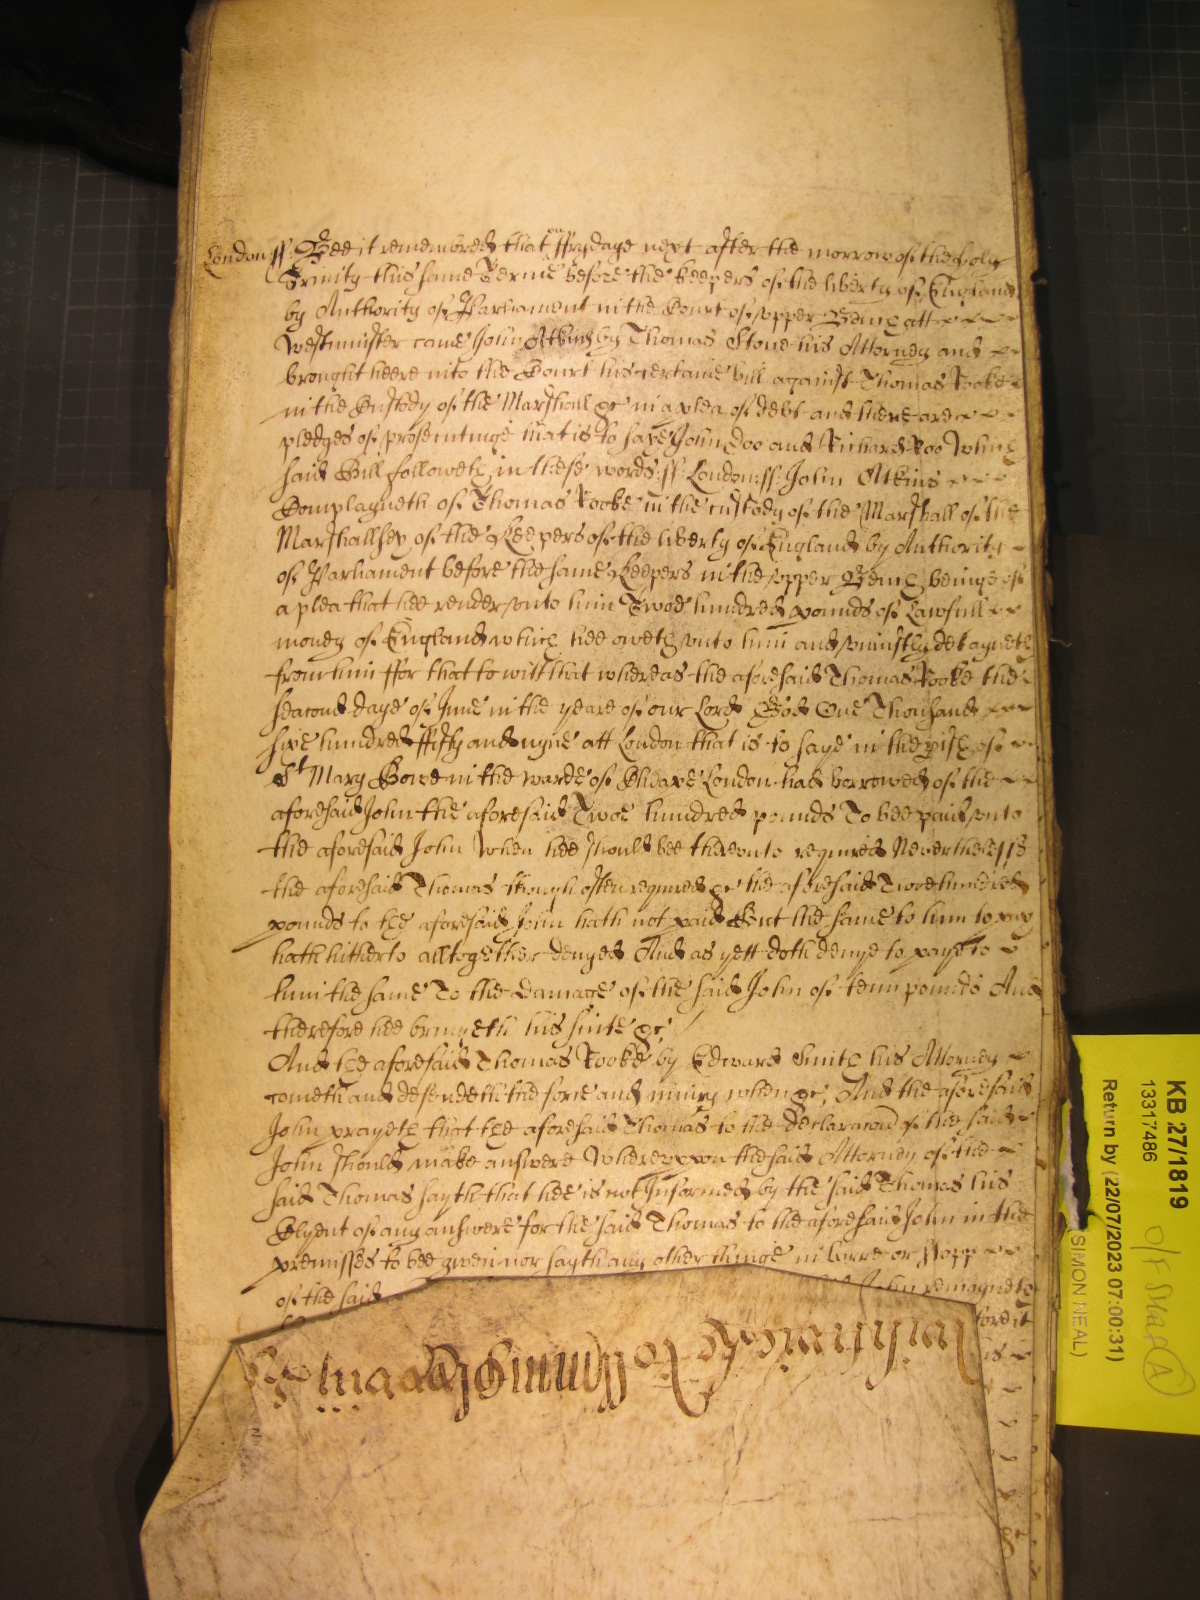 London ss: Bee it remembred that on ffrydaye next after the morrow of the holy
Trinity this same Terme before the keepers of the liberty of England
by Authority of Parliament in the Court of upper Bench att
Westminster came John Atkins by Thomas Stone his Attorney and
brought heere into the Court his certaine bill against Thomas Rooke
in the Custody of the Marshall &c in a plea of debt and there are
pledges of prosecutinge that is to saye John Doo and Richard Roo Which
said Bill followeth in these words: ss: London: ss: John Atkins
Complayneth of Thomas Rooke in the custody of the Marshall of the
Marshallsey of the Keepers of the liberty of England by Authority
of Parliament before the same Keepers in the upper Bench beinge of
a plea that hee render unto him Twoe hundred pounds of Lawfull
money of England which hee oweth unto him and uniustly detayneth
from him ffor that to witt that whereas the aforesaid Thomas Rooke the
seacond daye of June in the yeare of our Lord God One Thousand
sixe hundred ffifty and nyne att London that is to saye in the pish of
St Mary Bowe in the warde of Cheape London had borrowed of the
aforesaid John the aforesaid Twoe hundred pounds To bee paid unto
the aforesaid John When hee should bee thereunto required Neverthelesse
the aforesaid Thomas though often required &c the aforesaid Twoe hundred
pounds to the aforesaid John hath not paid but the same to him to pay
hath hitherto alltogether denyed And as yett doth denye to paye to
him the same To the damage of the said John of tenn pounds And
therefore hee bringeth his suite &c
And the aforesaid Thomas Rooke by Edward Smith his Attorney
cometh and defendeth the force and iniury when &c, And the aforesaid
John prayeth that the aforesaid Thomas to the declaracon of the said
John should make answere Whereuppon the said Attorney of the
said Thomas sayth that hee is not Informed by the said Thomas his
Clyent of any answere for the said Thomas to the aforesaid John in the
premisses to bee given nor sayth any other thinge in barre or stopp
of the said John remayneth
KB 27/1819
13317486
Return by (22/07/2023 07:00:31)
SIMON NEAL)
O/F Staff A